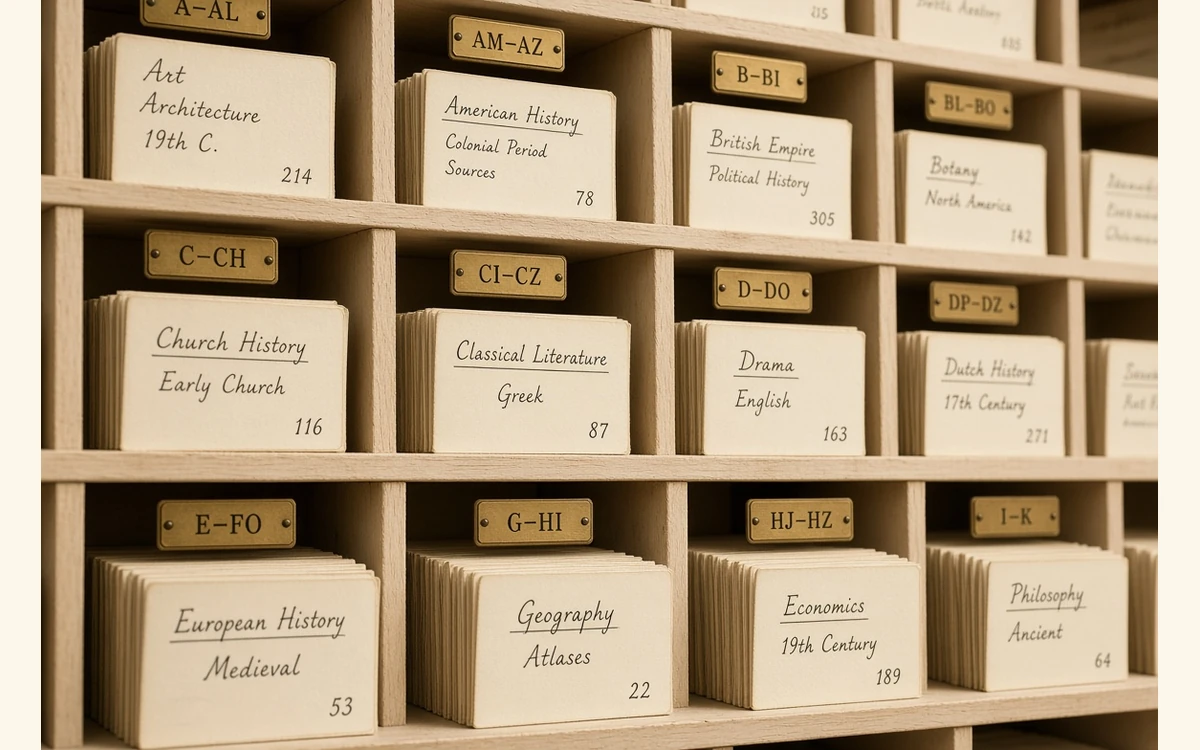 A-AL
Art
Architecture
19th C.
214
AM-AZ
American History
Colonial Period
Sources
78
B-BI
British Empire
Political History
305
BL-BO
Botany
North America
142
215
C-CH
Church History
Early Church
116
CI-CZ
Classical Literature
Greek
87
D-DO
Drama
English
163
DP-DZ
Dutch History
17th Century
271
E-FO
European History
Medieval
53
G-HI
Geography
Atlases
22
HJ-HZ
Economics
19th Century
189
I-K
Philosophy
Ancient
64